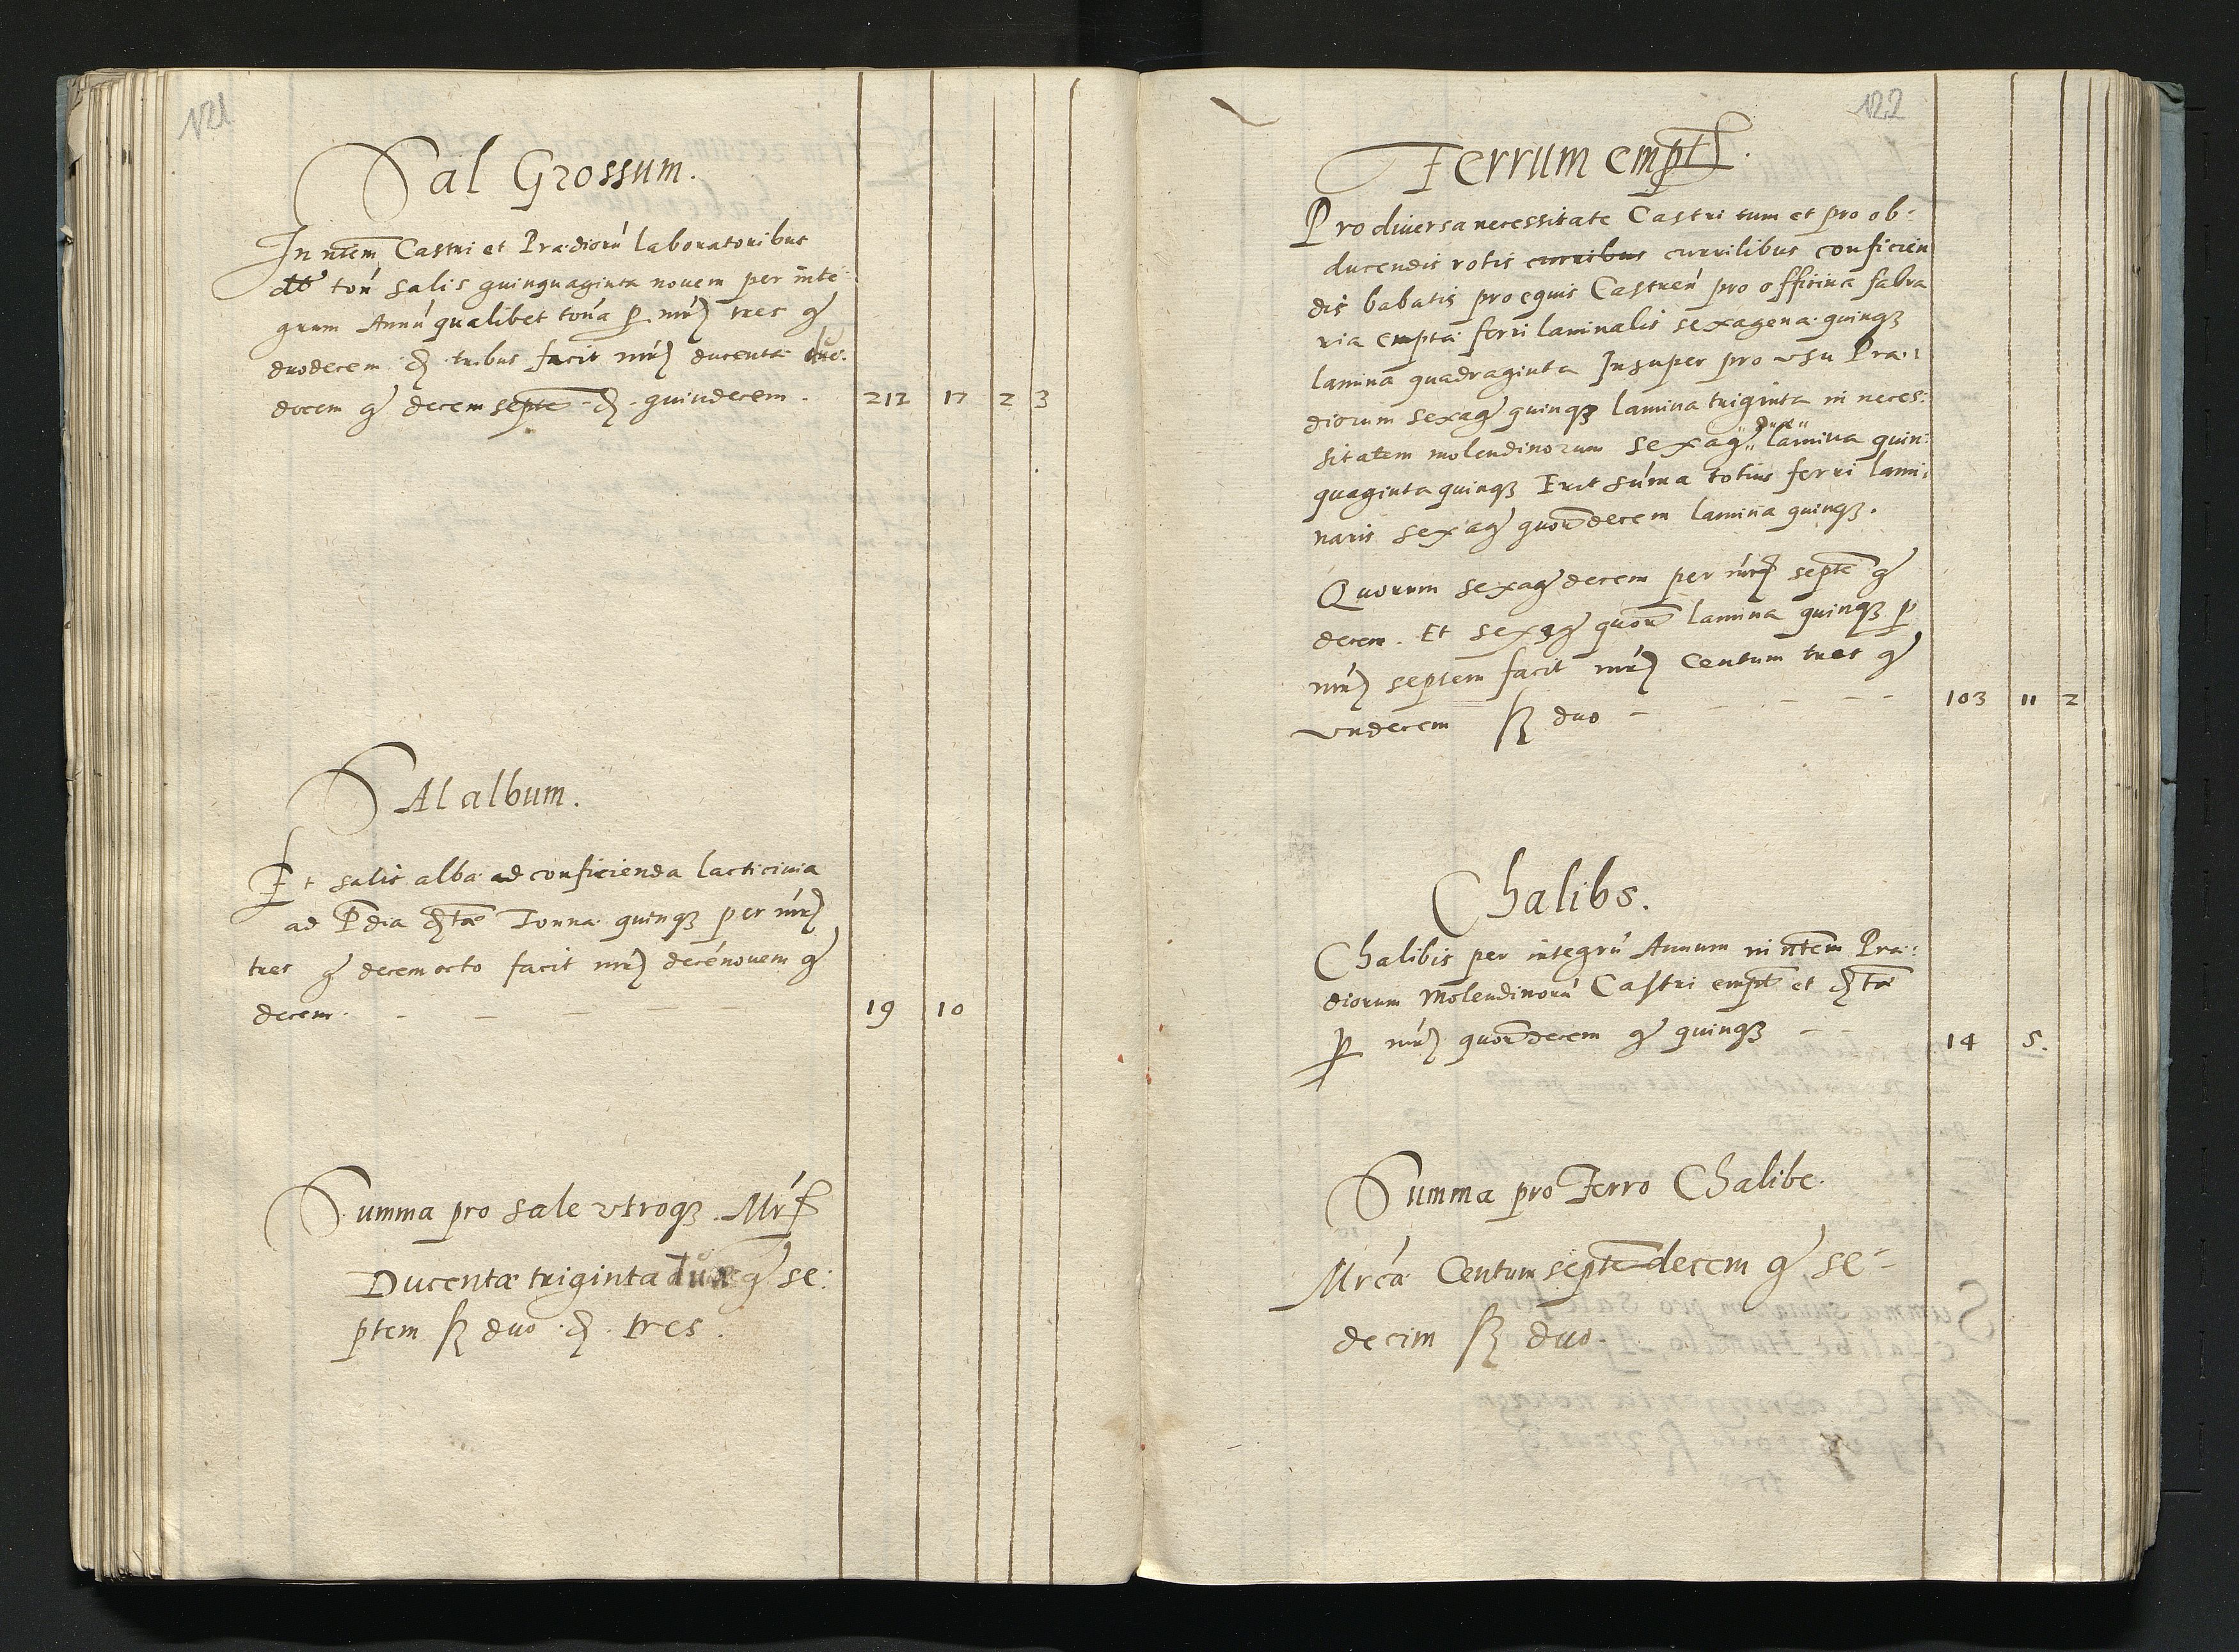 121
Sal Grossum.
In ntem Castri et Prædiorū laboratoribus
dt' ton̄ salis quinquaginta nouem per inte:
grum Annū qualibet toña p mrc tres gr
duodecem d tribus facit mrc ducenta duo:
decem gr decem septe d quindecem. 212 17 2 3
SAl album.
Et salis alba ad conficienda lacticinia
ad Pdia dta Tonna quinqʒ per mrc
tres gr decem octo facit mrc decēnouem gr
decem. 19 10
Summa pro sale vtroqʒ. Mrc
Ducentæ triginta duæ gr se:
ptem ß duo d tres.
122
Ferrum empt.
Pro diuersa necessitate Castri tum et pro ob:
ducendis rotis curribus currilibus conficien
dis babatis pro equis Castren̄ pro officina fabra
ria empta ferri laminalis sexagena quinqʒ
lamina quadraginta Insuper pro vsu Præ:
diorum sexag quinqʒ lamina triginta in neces:
sitatem molendinorum sexag duæ lamina quin:
quaginta quinqʒ Erit sum̄a totius ferri lami:
naris sexag quordecem lamina quinqʒ.
Quorum sexag decem per mrc septe gr
decem. Et sexag quor lamina quinqʒ p
mrc septem facit mrc Centum tres gr
vndecem ß duo 103 11 2
Chalibs.
Chalibis per integrū Annum in ntem Præ:
diorum Molendinorū Castri empt et dta
p mrc quordecem gr quinqʒ 14 5.
Summa pro Ferro Chalibe.
Mrca Centum septedecem gr se=
decim ß duo.